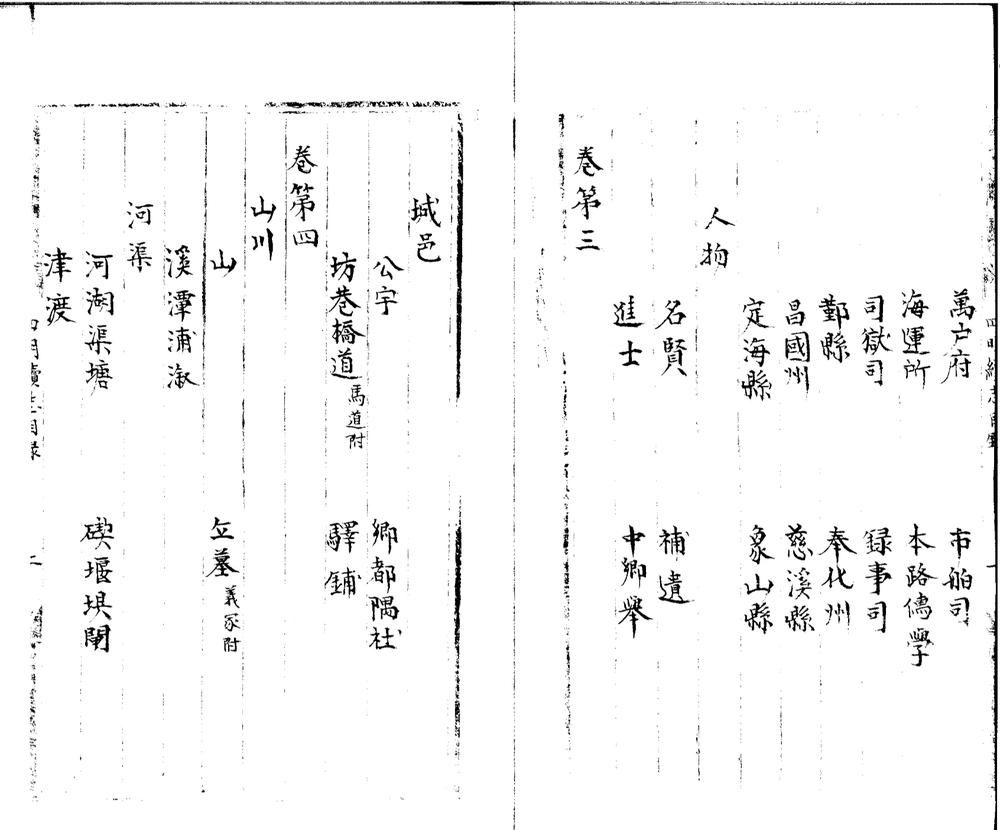 萬户府 市舶司
海運所 本路儒學
司獄司 録事司
鄞縣 奉化州
昌國州 慈溪縣
定海縣 象山縣
人物
名賢 補遺
進士 中鄉舉
卷第三
城邑
公宇 鄉都隅社
坊巷橋道 馬道附 驛鋪
卷第四
山川
山 丘墓 義冢附
溪潭浦溆
河渠
河湖渠塘 碶堰埧閘
津渡
四明續志目録 二